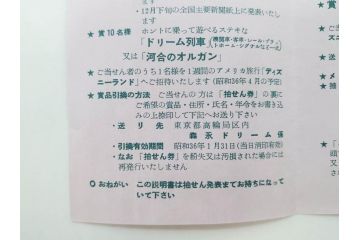 ・12月下旬の全国主要新聞紙上に発表いたし
ます
★賞10名様 ホントに乗って遊べるステキな
「ドリーム列車(機関車・客車・レール・プラットホーム・シグナルなど一式)
又は「河合のオルガン」
★ご当せん者のうち1名様を1週間のアメリカ旅行「ディズ
ニーランド」へご招待いたします(昭和36年4月の予定)
★賞品引換の方法 ご当せんの方は「抽せん券」の裏に
ご希望の賞品・住所・氏名・年令をお書込み
の上捺印して下記へお送り下さい
・送り先 東京都高輪局区内
森永ドリーム係
・引換有効期間 昭和36年1月31日(当日消印有効)
・なお「抽せん券」を紛失又は汚損された場合には
再発行いたしません
◎おねがい この説明書は抽せん発表までお持ちになって
いて下さい